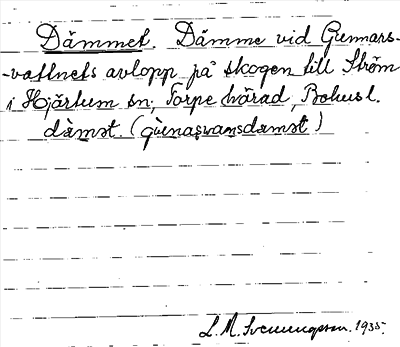 Dämmet. Dämme vid Gunnars-
-vattnets avlopp på skogen till Ström
i Hjärtum sn, Torpe härad, Bohusl.
dämst. (gùnaṣvansdæmst)
L. M. Svenungsson. 1935.